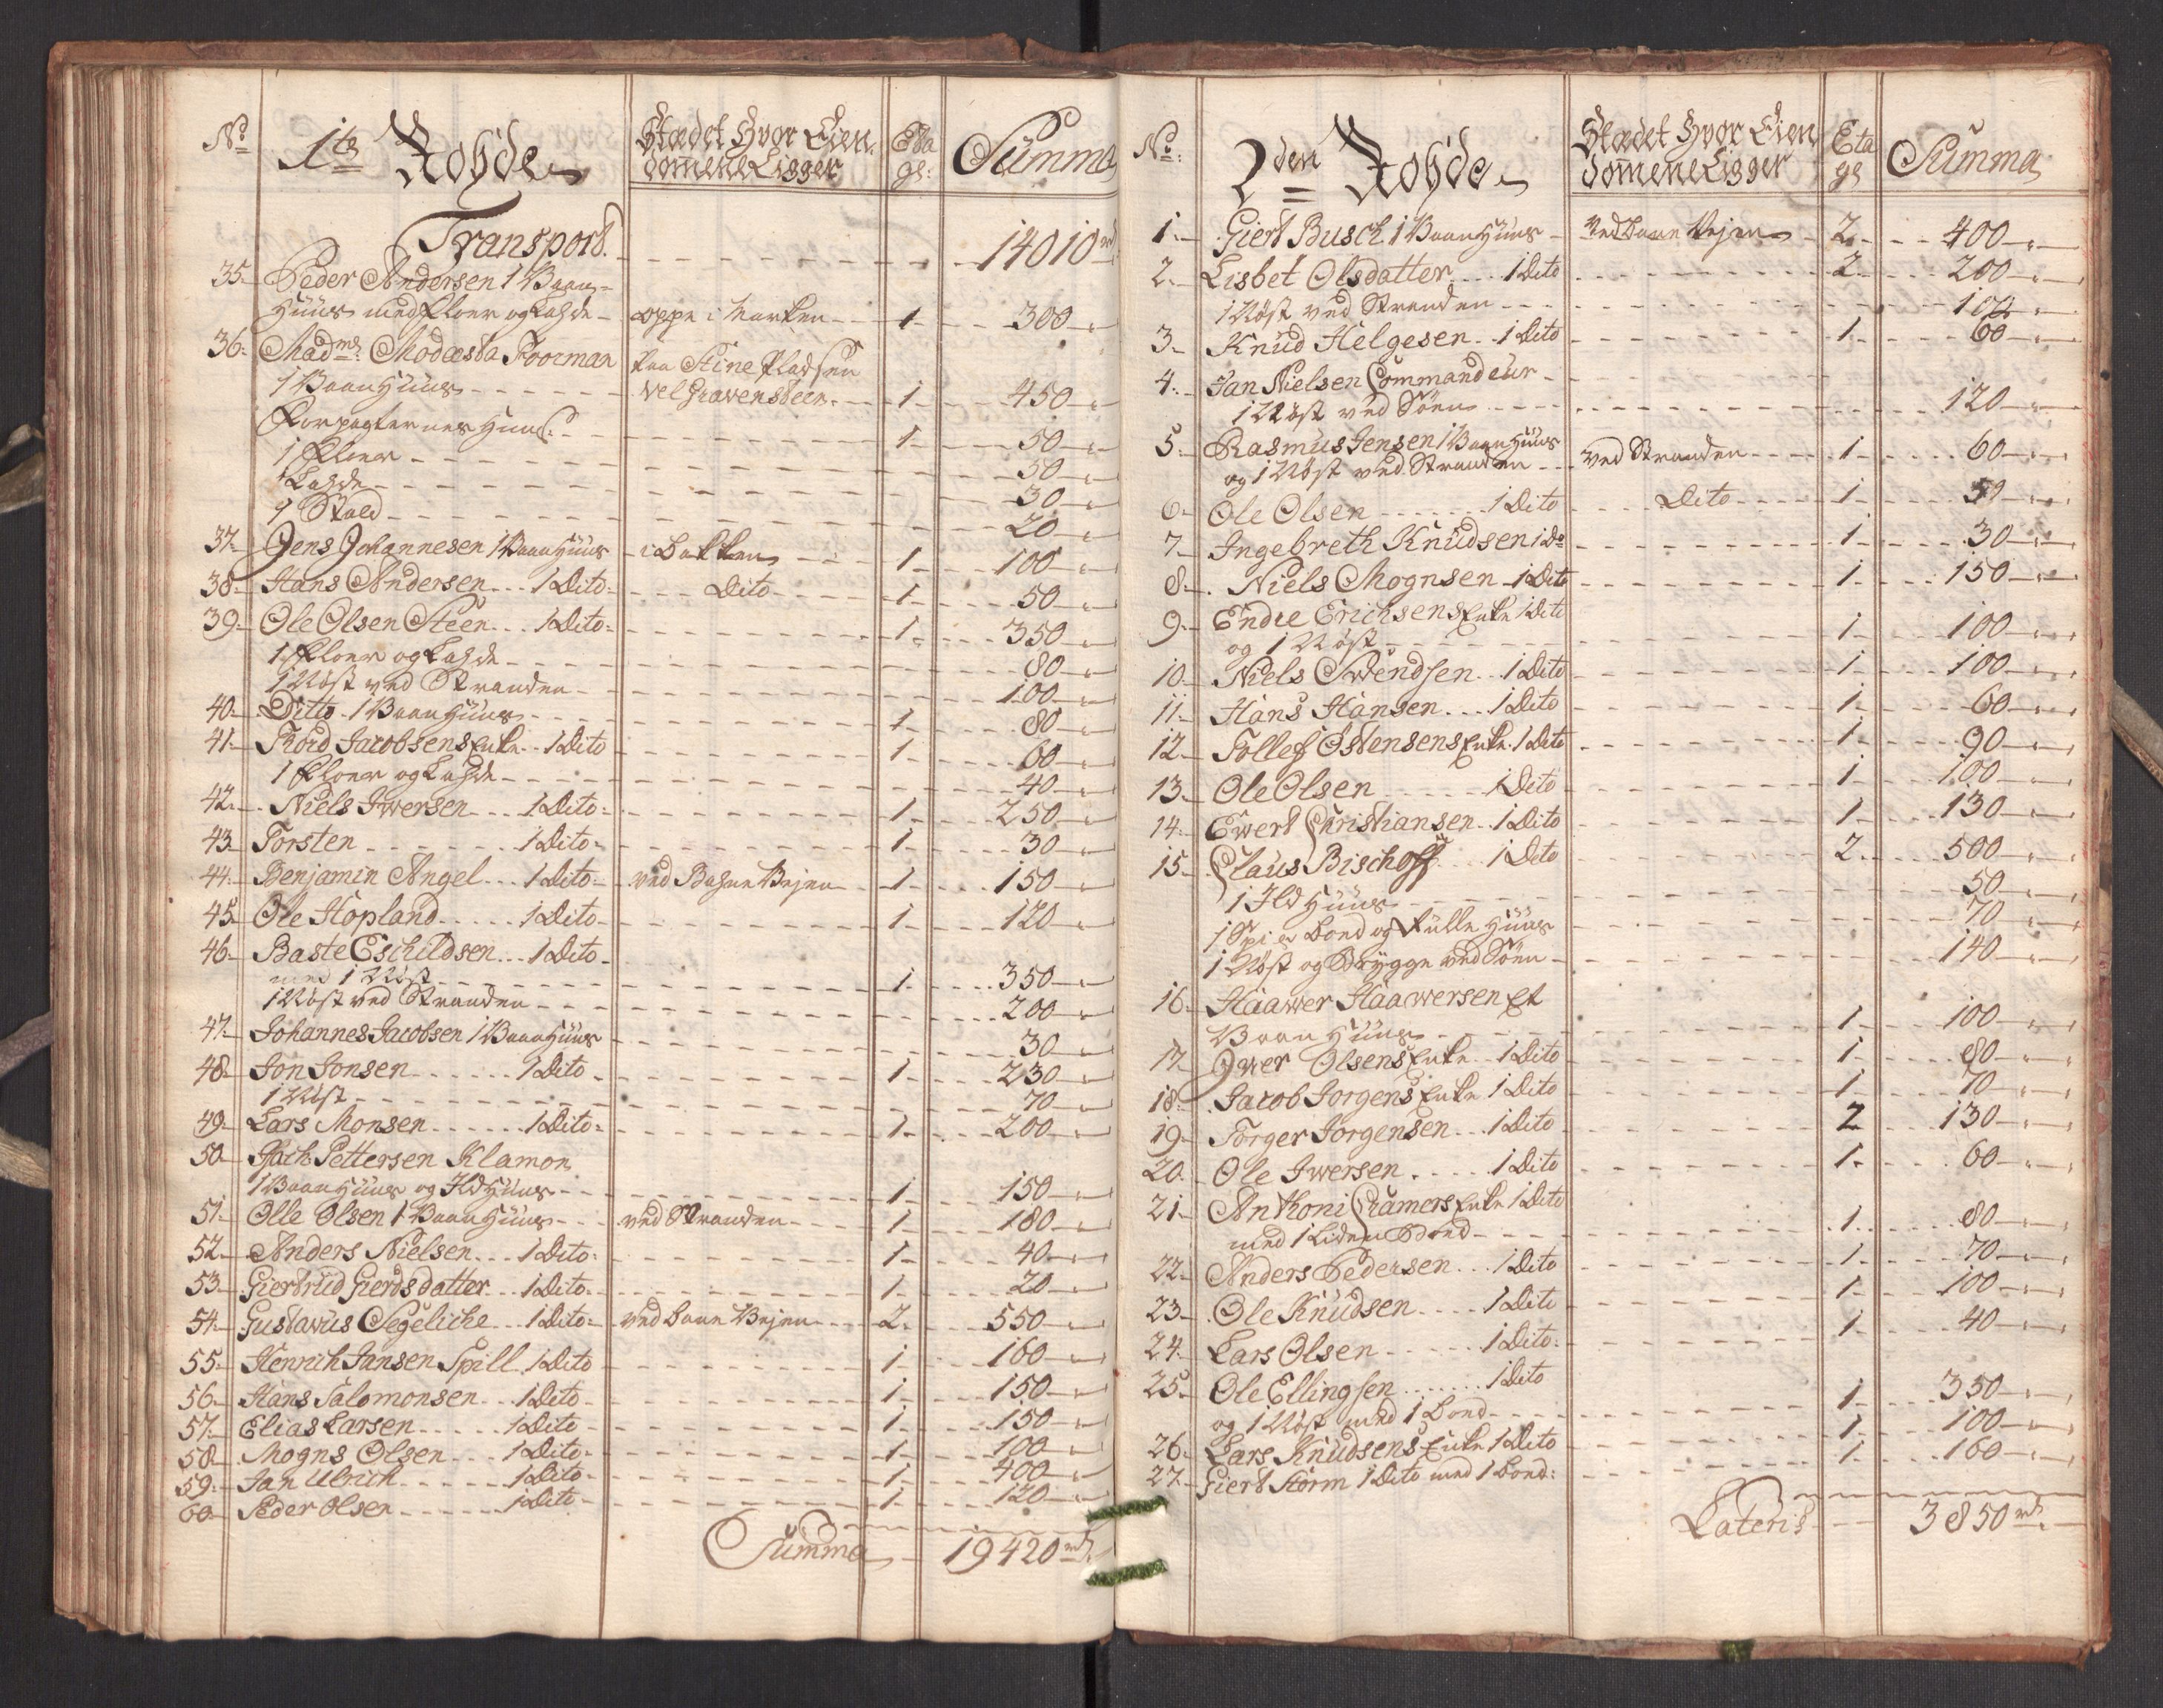 No 1te Rohde Stædet Hvor Eien- Eta Summa
domene Ligger ge:
Transport. 14010 rd
35. Peder Andersen 1 Vaan-
Huus med Floer og Lahde oppe i Marken 1 300
36. Madme Modesta Foorman paa Stine Pladsen
1 Vaan Huus Vel Gravensteen 1 450
Forpagternes Huus 1 50
1 Floer 50
1 Lahde 30
1 Stald 20
37. Jens Johannesen 1 Vaan Huus i Bakken 1 100
38. Hans Andersen 1 Dito Dito 1 50
39. Ole Olsen Steen 1 Dito 1 350
1 Floer og Lahde 80
1 Nøst ved Stranden 100
40. Ditto 1 Vaan Huus 1 80
41. Tord Jacobsens Enke 1 Dito 1 60
1 Floer og Lahde 40
42. Niels Iwersen 1 Dito 1 250
43. Torsten 1 Dito 1 30
44. Benjamin Angel 1 Dito ved Bahne Vejen 1 150
45. Ole Hopland 1 Dito 1 120
46. Baste Eschildsen 1 Dito
med 1 Nøst 1 350
1 Nøst ved Stranden 200
47. Johannes Jacobsen 1 Vaan Huus 30
48. Jon Jonsen 1 Dito 1 230
1 Nøst 70
49. Lars Monsen 1 Dito 1 200
50. Pettersen Klamon
1 Vaan Huus og Ildhuus 1 150
51. Olle Olsen 1 Vaan Huus ved Stranden 1 180
52. Anders Nielsen 1 Dito 1 40
53. Giertrud Gierdsdatter 1 Dito 1 20
54. Gustavus Segeliche 1 Dito ved Bane Vejen 2 550
55. Henrich Jansen Spill 1 Dito 1 160
56. Hans Salomonsen 1 Dito 1 150
57. Elias Larsen 1 Dito 1 150
58. Mogns Olsen 1 Dito 1 100
59. Jan Ulrich 1 Dito 1 400
60. Peder Olsen 1 Dito 1 120
Summa 19420 rd
No. 2den Rohde Stædet Hvor Eien Eta Summa
domene Ligger ge
1. Giert Busch 1 Vaan Huus ved Bane Vejen 2 400
2. Lisbet Olsdatter 1 Dito 2 200
1 Nøst ved Stranden 100
3. Knud Helgesen 1 Dito 1 60
4. Jan Nielsen Commandeur
1 Nøst ved Søen 120
5. Rasmus Jensen 1 Vaan Huus
og 1 Nøst ved Stranden ved Stranden 1 60
6. Ole Olsen 1 Dito Dito 1 50
7. Ingebreth Knudsen 1 Do 1 30
8. Niels Mognsen 1 Dito 1 150
9. Endre Erichsens Enke 1 Dito
og 1 Nøst 1 100
10. Niels Swendsen 1 Dito 1 100
11. Hans Hansen 1 Dito 1 60
12. Tollef Østensens Enke 1 Dito 1 90
13. Ole Olsen 1 Dito 1 100
14. Ewert Christiansen 1 Dito 1 130
15. Claus Bischoff 1 Dito 2 500
1 Ild Huus 50
1 Spise Boed og Kulle Huus 70
1 Nøst og Brygge ved Søen 140
16. Haawer Haawersen Et
Vaan Huus 1 100
17. Iwer Olsens Enke 1 Dito 1 80
18. Jacob Jorgens Enke 1 Dito 1 70
19. Torger Jorgensen 1 Dito 2 130
20. Ole Iwersen 1 Dito 1 60
21. Anthoni Cramers Enke 1 Dito
med 1 Liden Boed 1 80
22. Anders Pedersen 1 Dito 1 70
23. Ole Knudsen 1 Dito 1 100
24. Lars Olsen 1 Dito 1 40
25. Ole Ellingsen 1 Dito
og 1 Nøst med 1 Boed 1 350
26. Lars Knudsens Enke 1 Dito 1 100
27. Giert Storm 1 Dito med 1 Boed: 1 160
Lateris 3850 rd